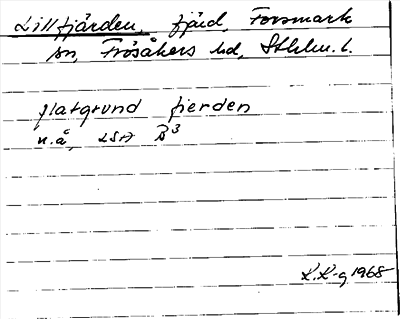 Lillfjärden, fjärd, Forsmark
sn, Frösåkers hd, Sthlm. l.
flatgrund fierden
n.å, LSA B3
K.K-g 1968